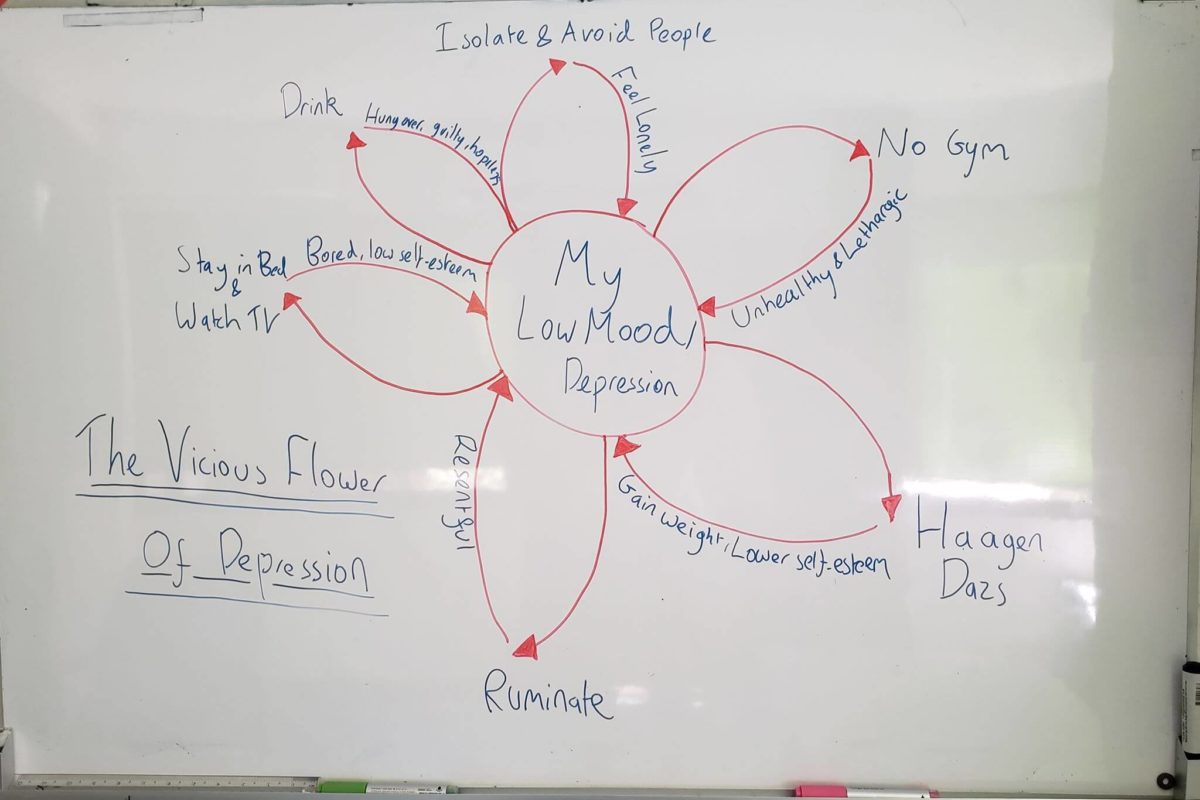 Isolate & Avoid People
Feel Lonely
Drink
Hungover, guilty, hopeless
No Gym
Unhealthy & Lethargic
Stay in Bed
&
Watch TV
Bored, low self-esteem
My
Low Mood/
Depression
The Vicious Flower
Of Depression
Resentful
Gain weight, Lower self-esteem
Haagen
Dazs
Ruminate